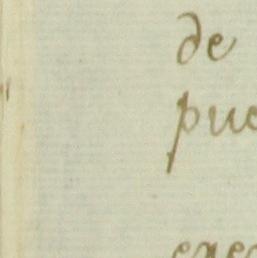 de
pue